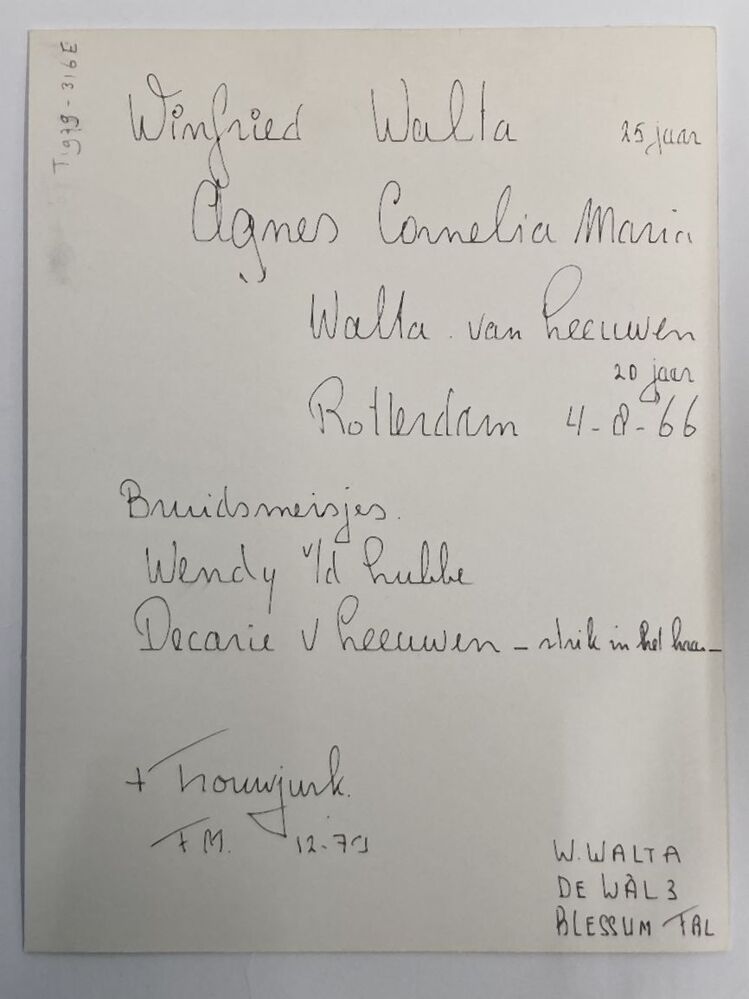 T1979-316E
Winfried Walta 25 jaar
Agnes Cornelia Maria
Walta. van Leeuwen
20 jaar
Rotterdam 4-8-'66
Bruidsmeisjes.
Wendy v/d Lubbe
Decarie v Leeuwen - strik in het haar -
+ Trouwjurk.
FM. 12-79
W. WALTA
DE WÀL 3
BLESSUM FRL